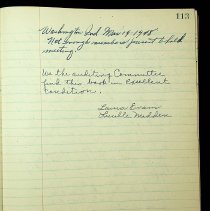 113
Washington Ind Mar 14 1905
Not enough members present to hold
meeting.
We the auditing Committee
find this book in Excellent
Condition.
Laura Evans
Lucille Madden